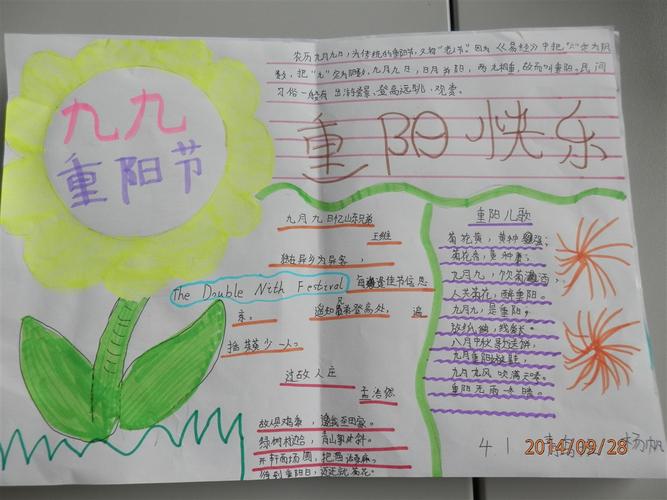 九九
重阳节
农历九月九日，为传统的重阳节，又称“老人节”因为《易经》中把“六”定为阴
数，把“九”定为阳数，九月九日，日月并阳，两九相重，故而叫重阳。民间
习俗一般有出游赏景、登高远眺、观菊。
重阳快乐
九月九日忆山东兄弟
王维
独在异乡为异客，
每逢佳节倍思
亲。遥知兄弟登高处，遍
插茱萸少一人。
The Double Nith Festival
过故人庄
孟浩然
故人具鸡黍，邀我至田家。
绿树村边合，青山郭外斜。
开轩面场圃，把酒话桑麻。
待到重阳日，还来就菊花。
重阳儿歌
菊花黄，黄种强；
菊花香，黄种康；
九月九，饮菊酒，
人共菊花，醉重阳。
九月九，是重阳，
放纸鹞，线爱长。
八月中秋
九月重阳
九月九风吹满天
重阳无雨一冬晴。
4 1
杨帆
2014/09/28